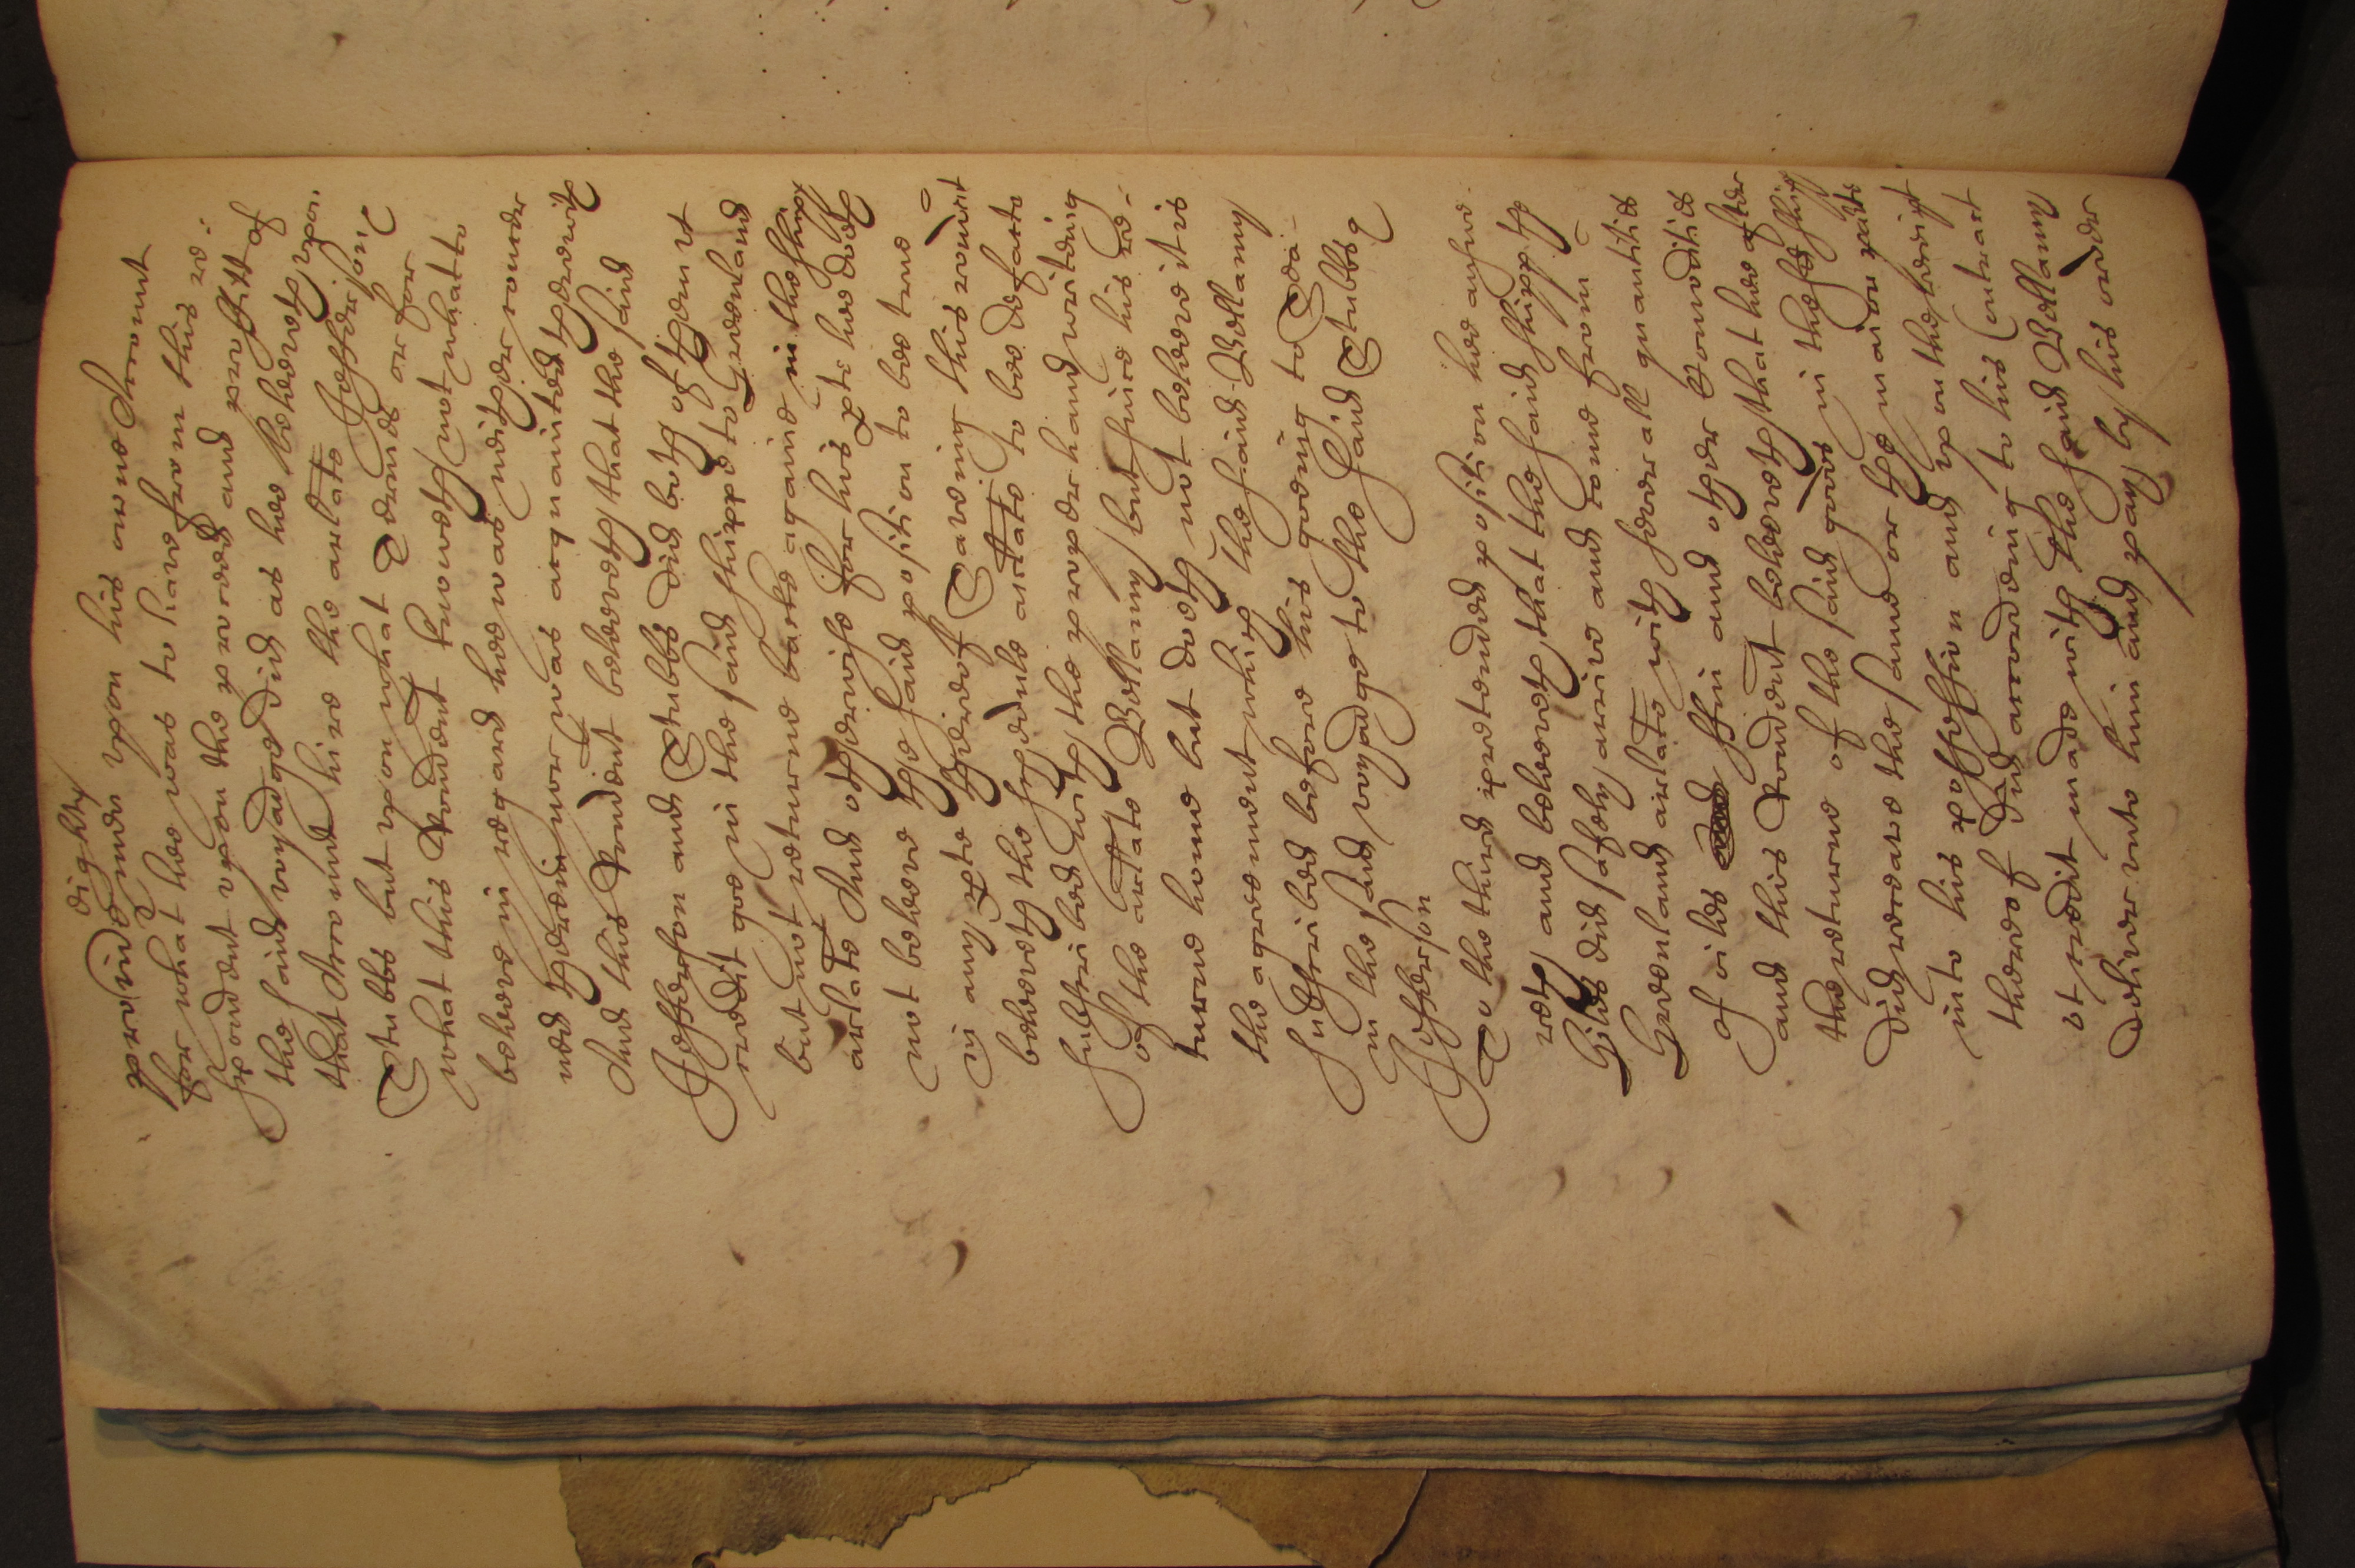 dighby
provide him upon his owne Accounte
for what hee was to have from this re:
spondent upon the proceed and proffitt of
the said voyadge did as hee beleeveth upon.
that Accounte hire the arlate Jefferson
Stubbs but upon what Termes or for
what this Rendent knoweth not what to
beleeve in regard hee was neither councer
ned therein nor was acquainted therewith
And this Rendent beleeveth that the said
Jefferson and Stubbs did both of them
goe in the said shippe to Greenland
but not returne backe againe in the shipp
arlate And otherwise for his pte hee doth
not beleeve the said position to bee true
in any pte thereof Saveing this rendent
beleeveth the schedule arlate to bee de facto
subscribed with the proper hand writeing
of the arlate Bellamy, but since his re-
turne home but doeth not beleeve it is
the agreement which the said Bellamy
subscribed before his goeing to Sea
in the said voyadge to the said Stubbs
Jefferson
To the third pretended position hee answe-
reth and beleeveth that the said shipp the
Giles did safely arive and come from
Greenland arlate with severall quantities
of oiles ffin and other Comodities
and this Rendent beleeveth that hee after
the returne of the said goods in the sd shipp
did receave the same or the maior parte
into his possession and upon the receipt
thereof did according to his Contract
et credit made with the said Bellamy
deliver unto him and pay by his order